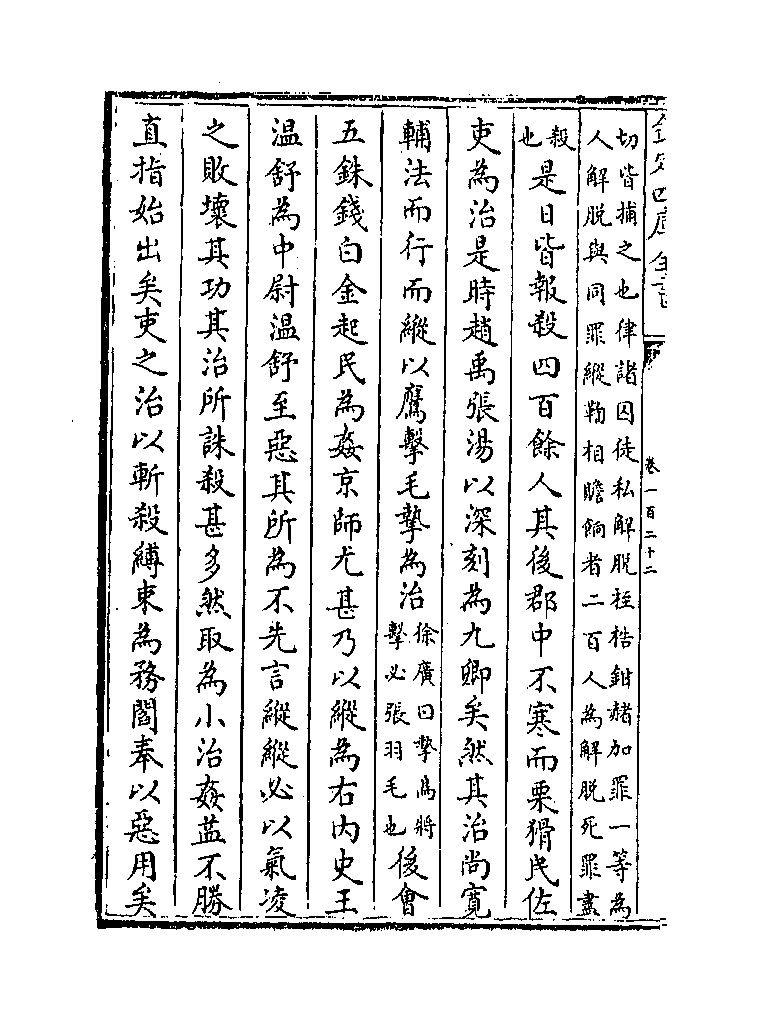 欽定四庫全書
卷一百二十二
切皆捕之也律諸囚徒私解脫桎梏鉗赭加罪一等為
人解脫與同罪縱鞫相贍餉者二百人為解脫死罪盡
殺
也
是日皆報殺四百餘人其後郡中不寒而栗猾民佐
吏為治是時趙禹張湯以深刻為九卿矣然其治尚寛
輔法而行而縱以鷹擊毛摯為治
徐廣曰摯鳥將
擊必張羽毛也
後會
五銖錢白金起民為姦京師尤甚乃以縱為右内史王
温舒為中尉温舒至惡其所為不先言縱縱必以氣凌
之敗壞其功其治所誅殺甚多然取為小治姦益不勝
直指始出矣吏之治以斬殺縛束為務閻奉以惡用矣